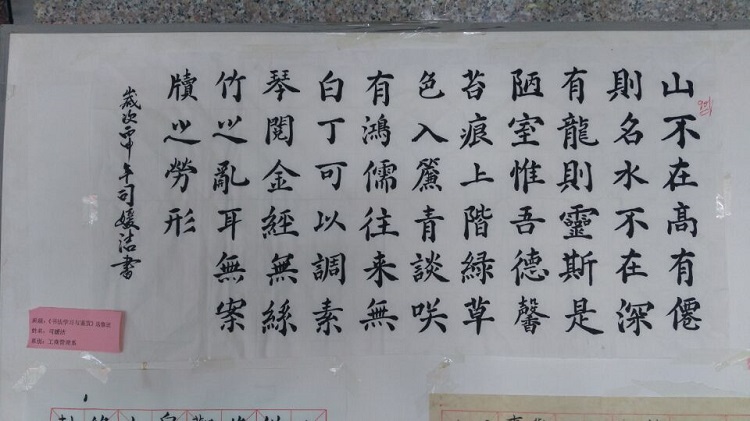 山不在高有僊
則名水不在深
有龍則靈斯是
陋室惟吾德馨
苔痕上階綠草
色入簾青談咲
有鴻儒往来無
白丁可以調素
琴閱金經無絲
竹之亂耳無案
牘之勞形
歲次甲午司媛洁書
姓名：司媛洁
系别：工商管理系